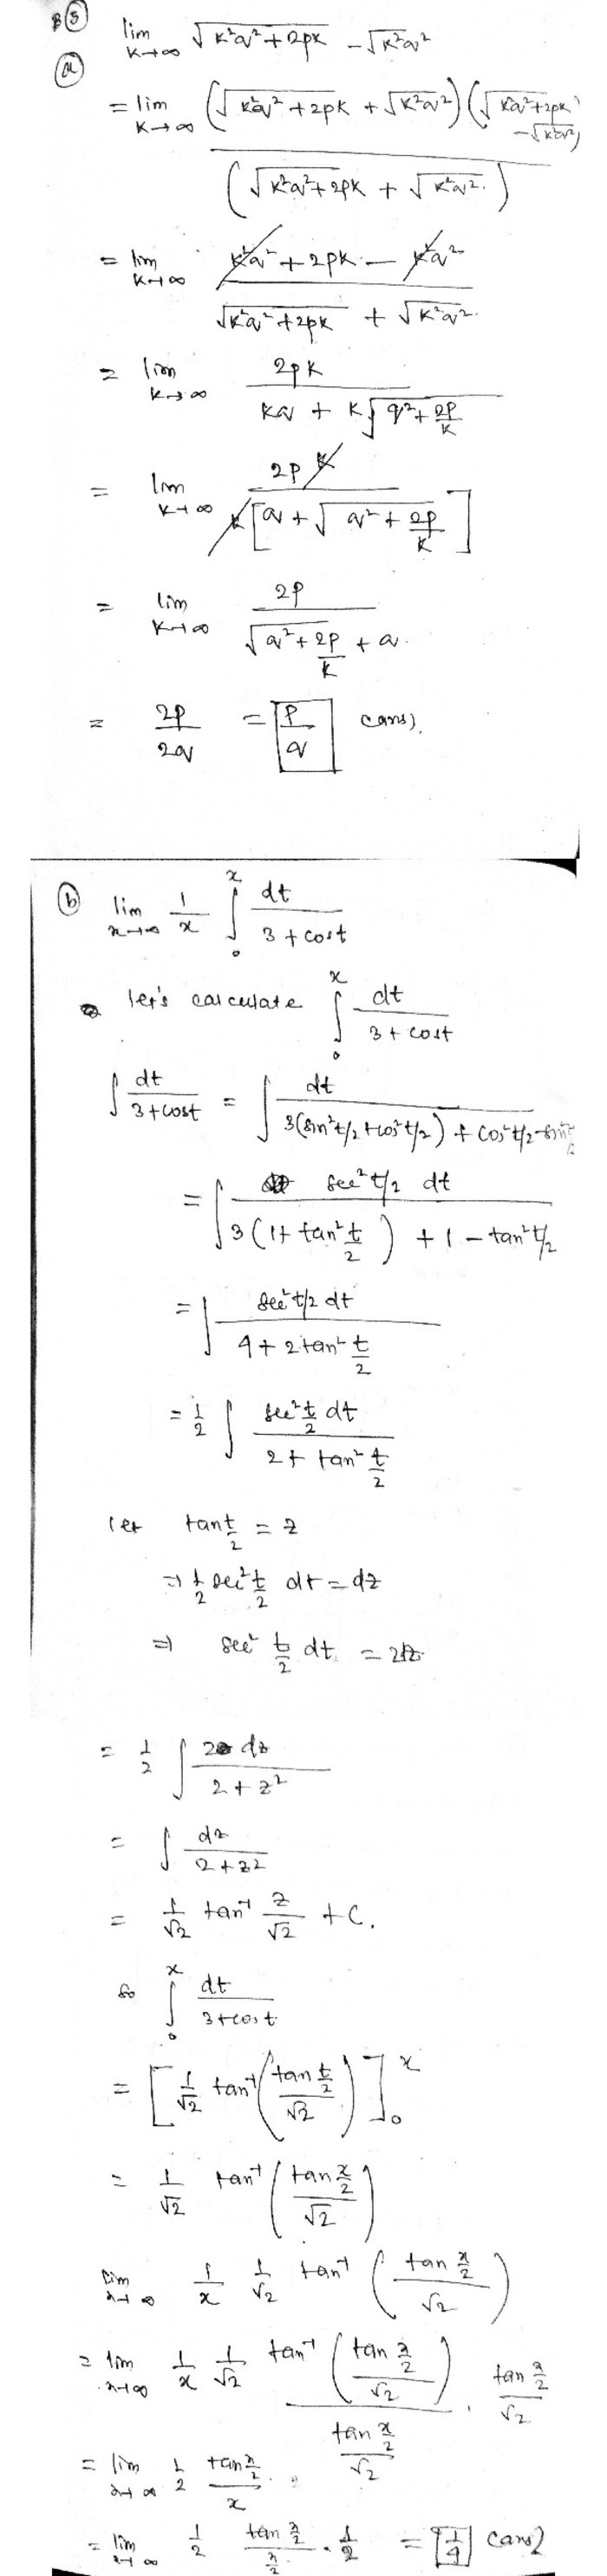 B⑤ lim k→∞ √(k²q²+2pk) - √(k²q²)
ⓐ
= lim k→∞ (√(k²q²+2pk) + √(k²q²)) (√(k²q²+2pk) - √(k²q²)) / (√(k²q²+2pk) + √(k²q²))
= lim k→∞ (k²q² + 2pk - k²q²) / (√(k²q²+2pk) + √(k²q²))
= lim k→∞ 2pk / (kq + k√(q²+2p/k))
= lim k→∞ 2pk / k[q + √(q²+2p/k)]
= lim k→∞ 2p / (√(q²+2p/k) + q)
= 2p/2q = p/q (ans).
ⓑ lim x→∞ 1/x ∫₀ˣ dt/(3+cost)
let's calculate ∫₀ˣ dt/(3+cost)
∫ dt/(3+cost) = ∫ dt / (3(sin²t/2+cos²t/2) + cos²t/2-sin²t/2)
= ∫ sec²t/2 dt / (3(1+tan²t/2) + 1 - tan²t/2)
= ∫ sec²t/2 dt / (4+2tan²t/2)
= 1/2 ∫ sec²t/2 dt / (2+tan²t/2)
let tan t/2 = z
⇒ 1/2 sec²t/2 dt = dz
⇒ sec² t/2 dt = 2dz
= 1/2 ∫ 2dz/(2+z²)
= ∫ dz/(2+z²)
= 1/√2 tan⁻¹ z/√2 + C.
so ∫₀ˣ dt/(3+cost)
= [1/√2 tan⁻¹(tan t/2 / √2)]₀ˣ
= 1/√2 tan⁻¹(tan x/2 / √2)
lim x→∞ 1/x 1/√2 tan⁻¹(tan x/2 / √2)
= lim x→∞ 1/x 1/√2 tan⁻¹(tan x/2 / √2) / (tan x/2 / √2) . tan x/2 / √2
= lim x→∞ 1/2 tan x/2 / x .
= lim x→∞ 1/2 tan x/2 / (x/2) . 1/2 = 1/4 (ans)